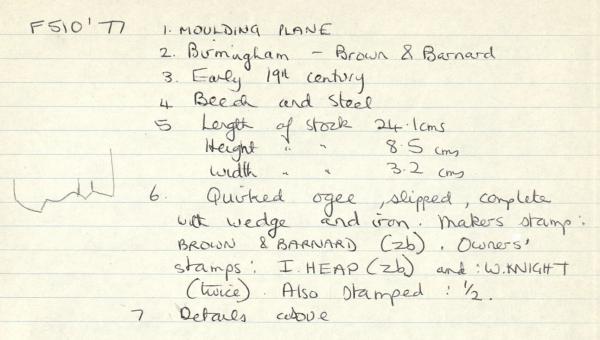 F510'77 1. MOULDING PLANE
2. Birmingham - Brown & Barnard
3. Early 19th century
4 Beech and Steel
5 Length of stock 24.1cms
Height " " 8.5 cms
Width " " 3.2 cms
6. Quirked ogee, slipped, complete
with wedge and iron. Makers stamp:
BROWN & BARNARD (2b). Owners'
stamps: I. HEAP (2b) and: W. KNIGHT
(twice). Also stamped: 1/2.
7 Details above